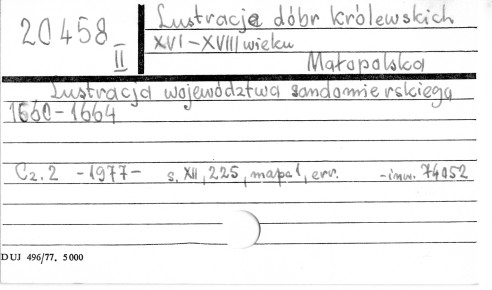 20458
II
Lustracje dóbr królewskich
XVI-XVIII wieku
Małopolska
Lustracja województwa sandomierskiego
1660-1664
Cz. 2 -1977- s. XII, 225, mapa 1, err. -inw. 74052
DUJ 496/77. 5000